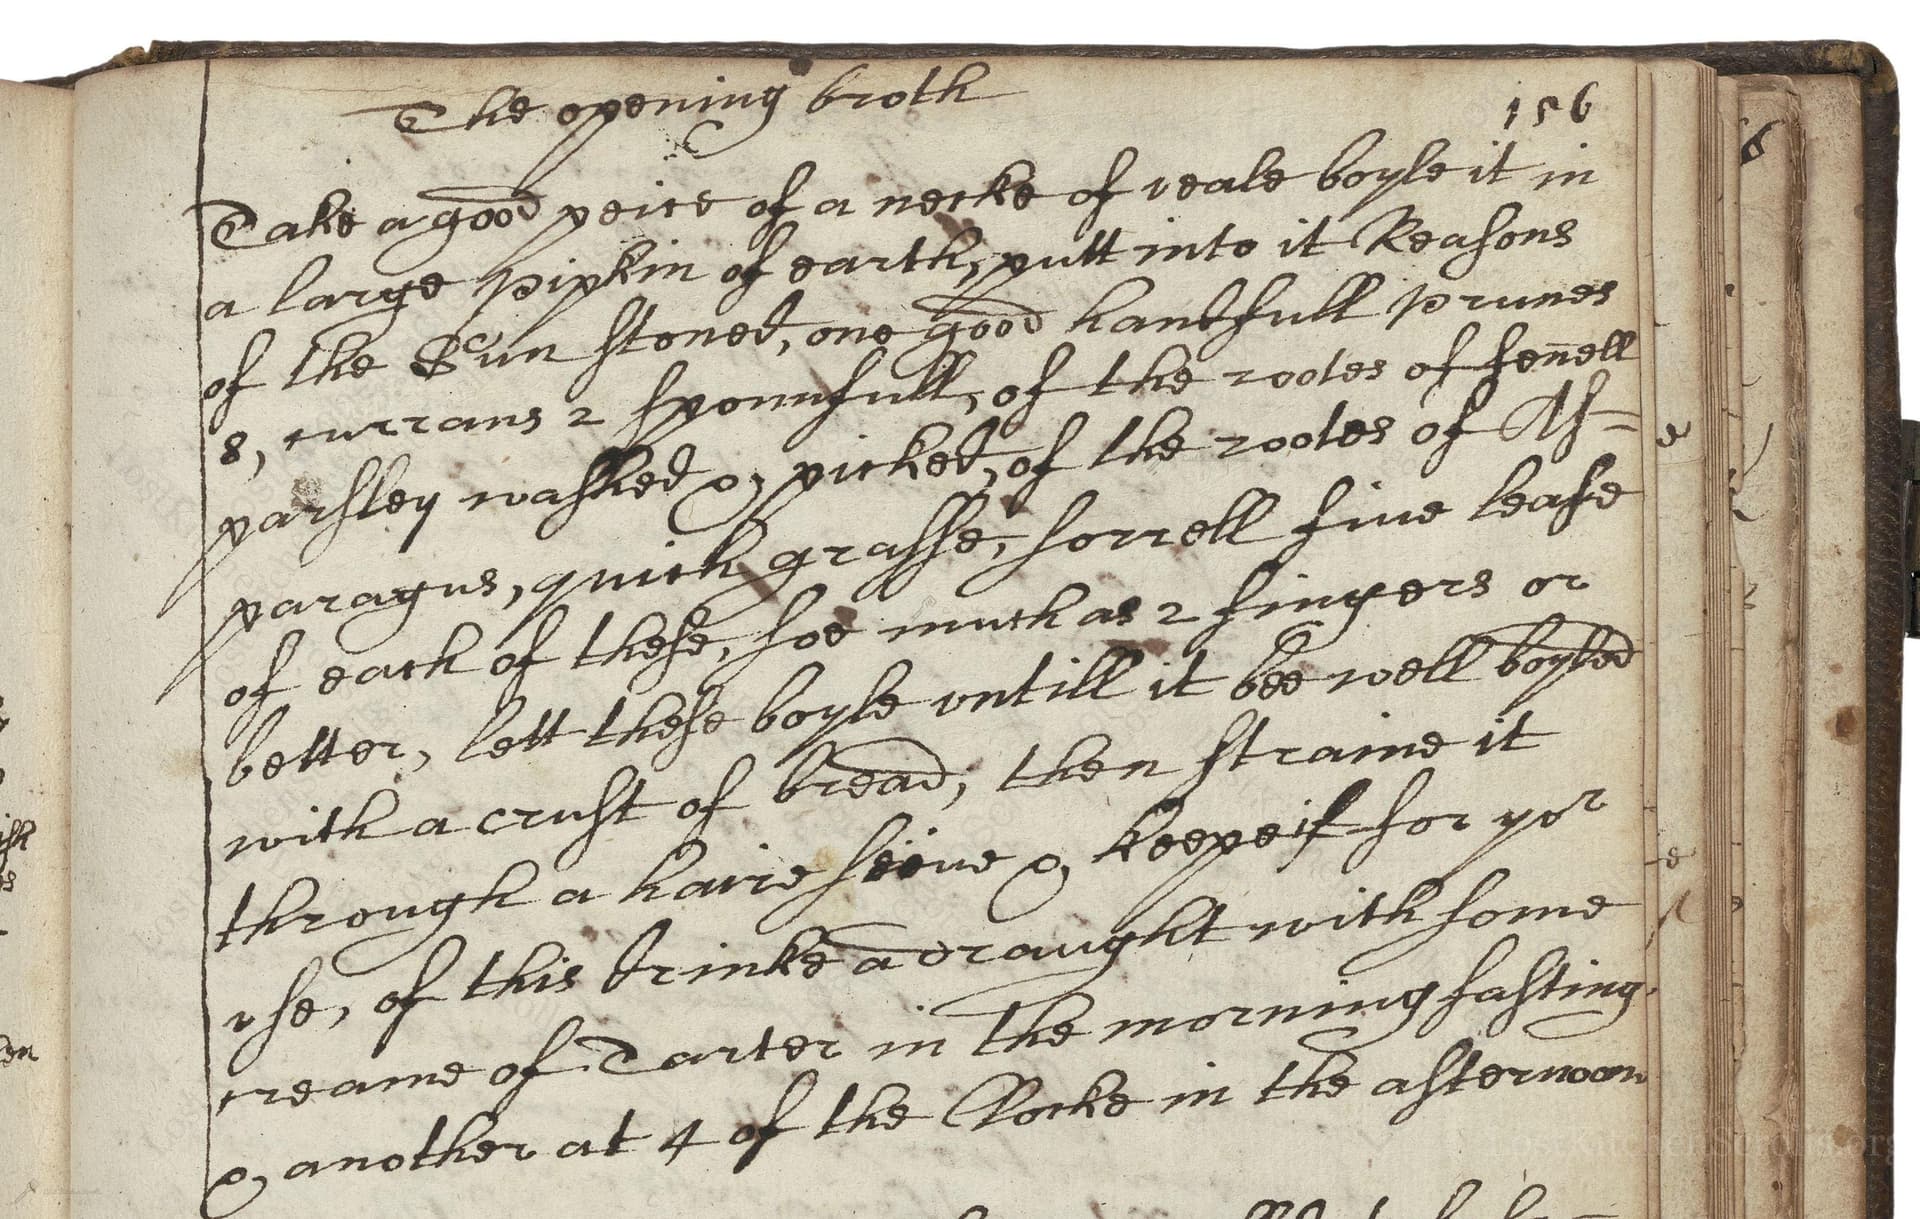 The opening broth
156
Take a good peice of a necke of veale boyle it in
a large pipkin of earth, putt into it Reasons
of the Sun stoned, one good handfull prunes
8, currans 2 spounfull, of the rootes of fen̄ell
parsley washed & picked, of the rootes of As-
paragus, quick grasse, sorrell five leafe
of each of these, soe much as 2 fingers or
better, lett these boyle untill it bee well boyled
with a crust of bread, then straine it
through a haire seeve & keepe it for yor
vse, of this drinke a draught with some
creame of Tarter in the morning fasting,
& another at 4 of the Clocke in the afternoon